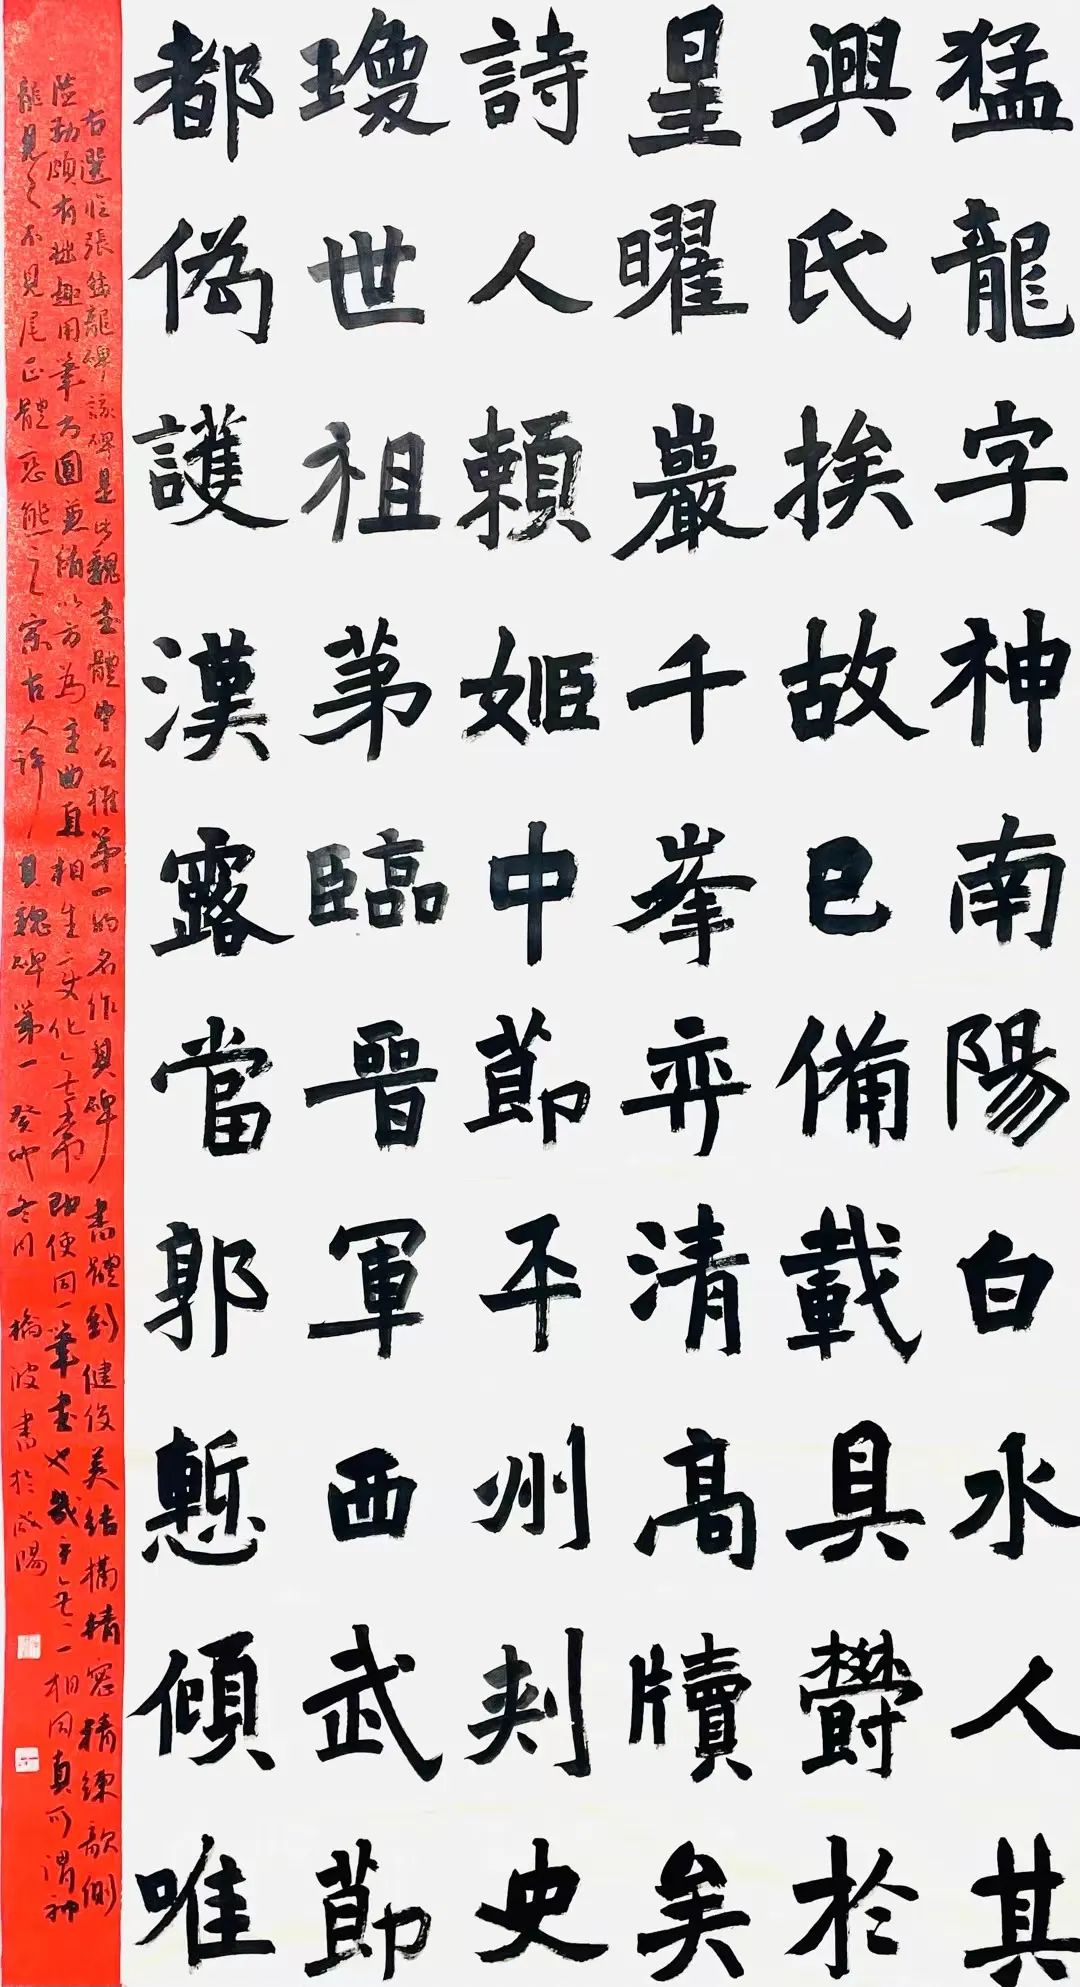 猛龍字神南陽白水人其
興氏挨故已備載具欝於
皇曜巖千峯弈清高牘矣
詩人頼姬中莭丕州刾史
瓊世祖苐臨晉軍西武莭
都偽護漢露當郭慙傾唯
右選临張猛龍碑該碑是北魏書體中公推第一的名作其碑書體剑健俊美结構精密精练欹侧
险勁頗有拙趣用筆方圓並備以方為主曲直相生变化即使同一筆畫也幾乎无一相同真可谓神
龍見之不見尾正體变態之宗古人许其魏碑第一 癸卯冬月 橋波書於咸陽